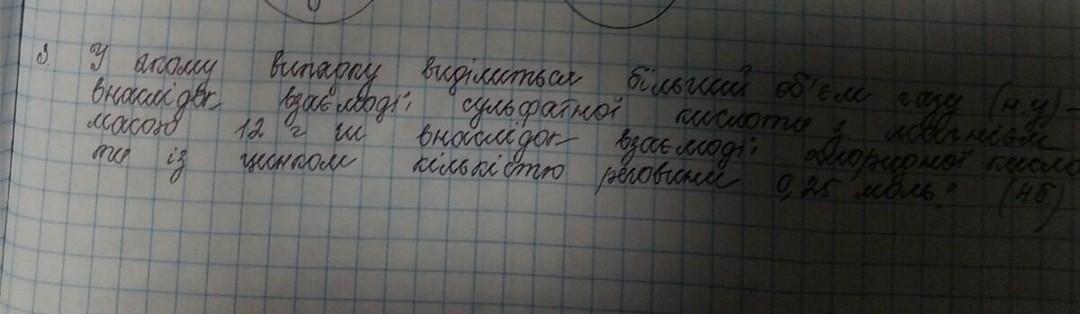 3. У якому випадку виділиться більший об'єм газу (н.у) -
внаслідок взаємодії сульфатної кислоти з магнієм
масою 12 г чи внаслідок взаємодії хлоридної кисло
ти із цинком кількістю речовини 0,25 моль? (4б)